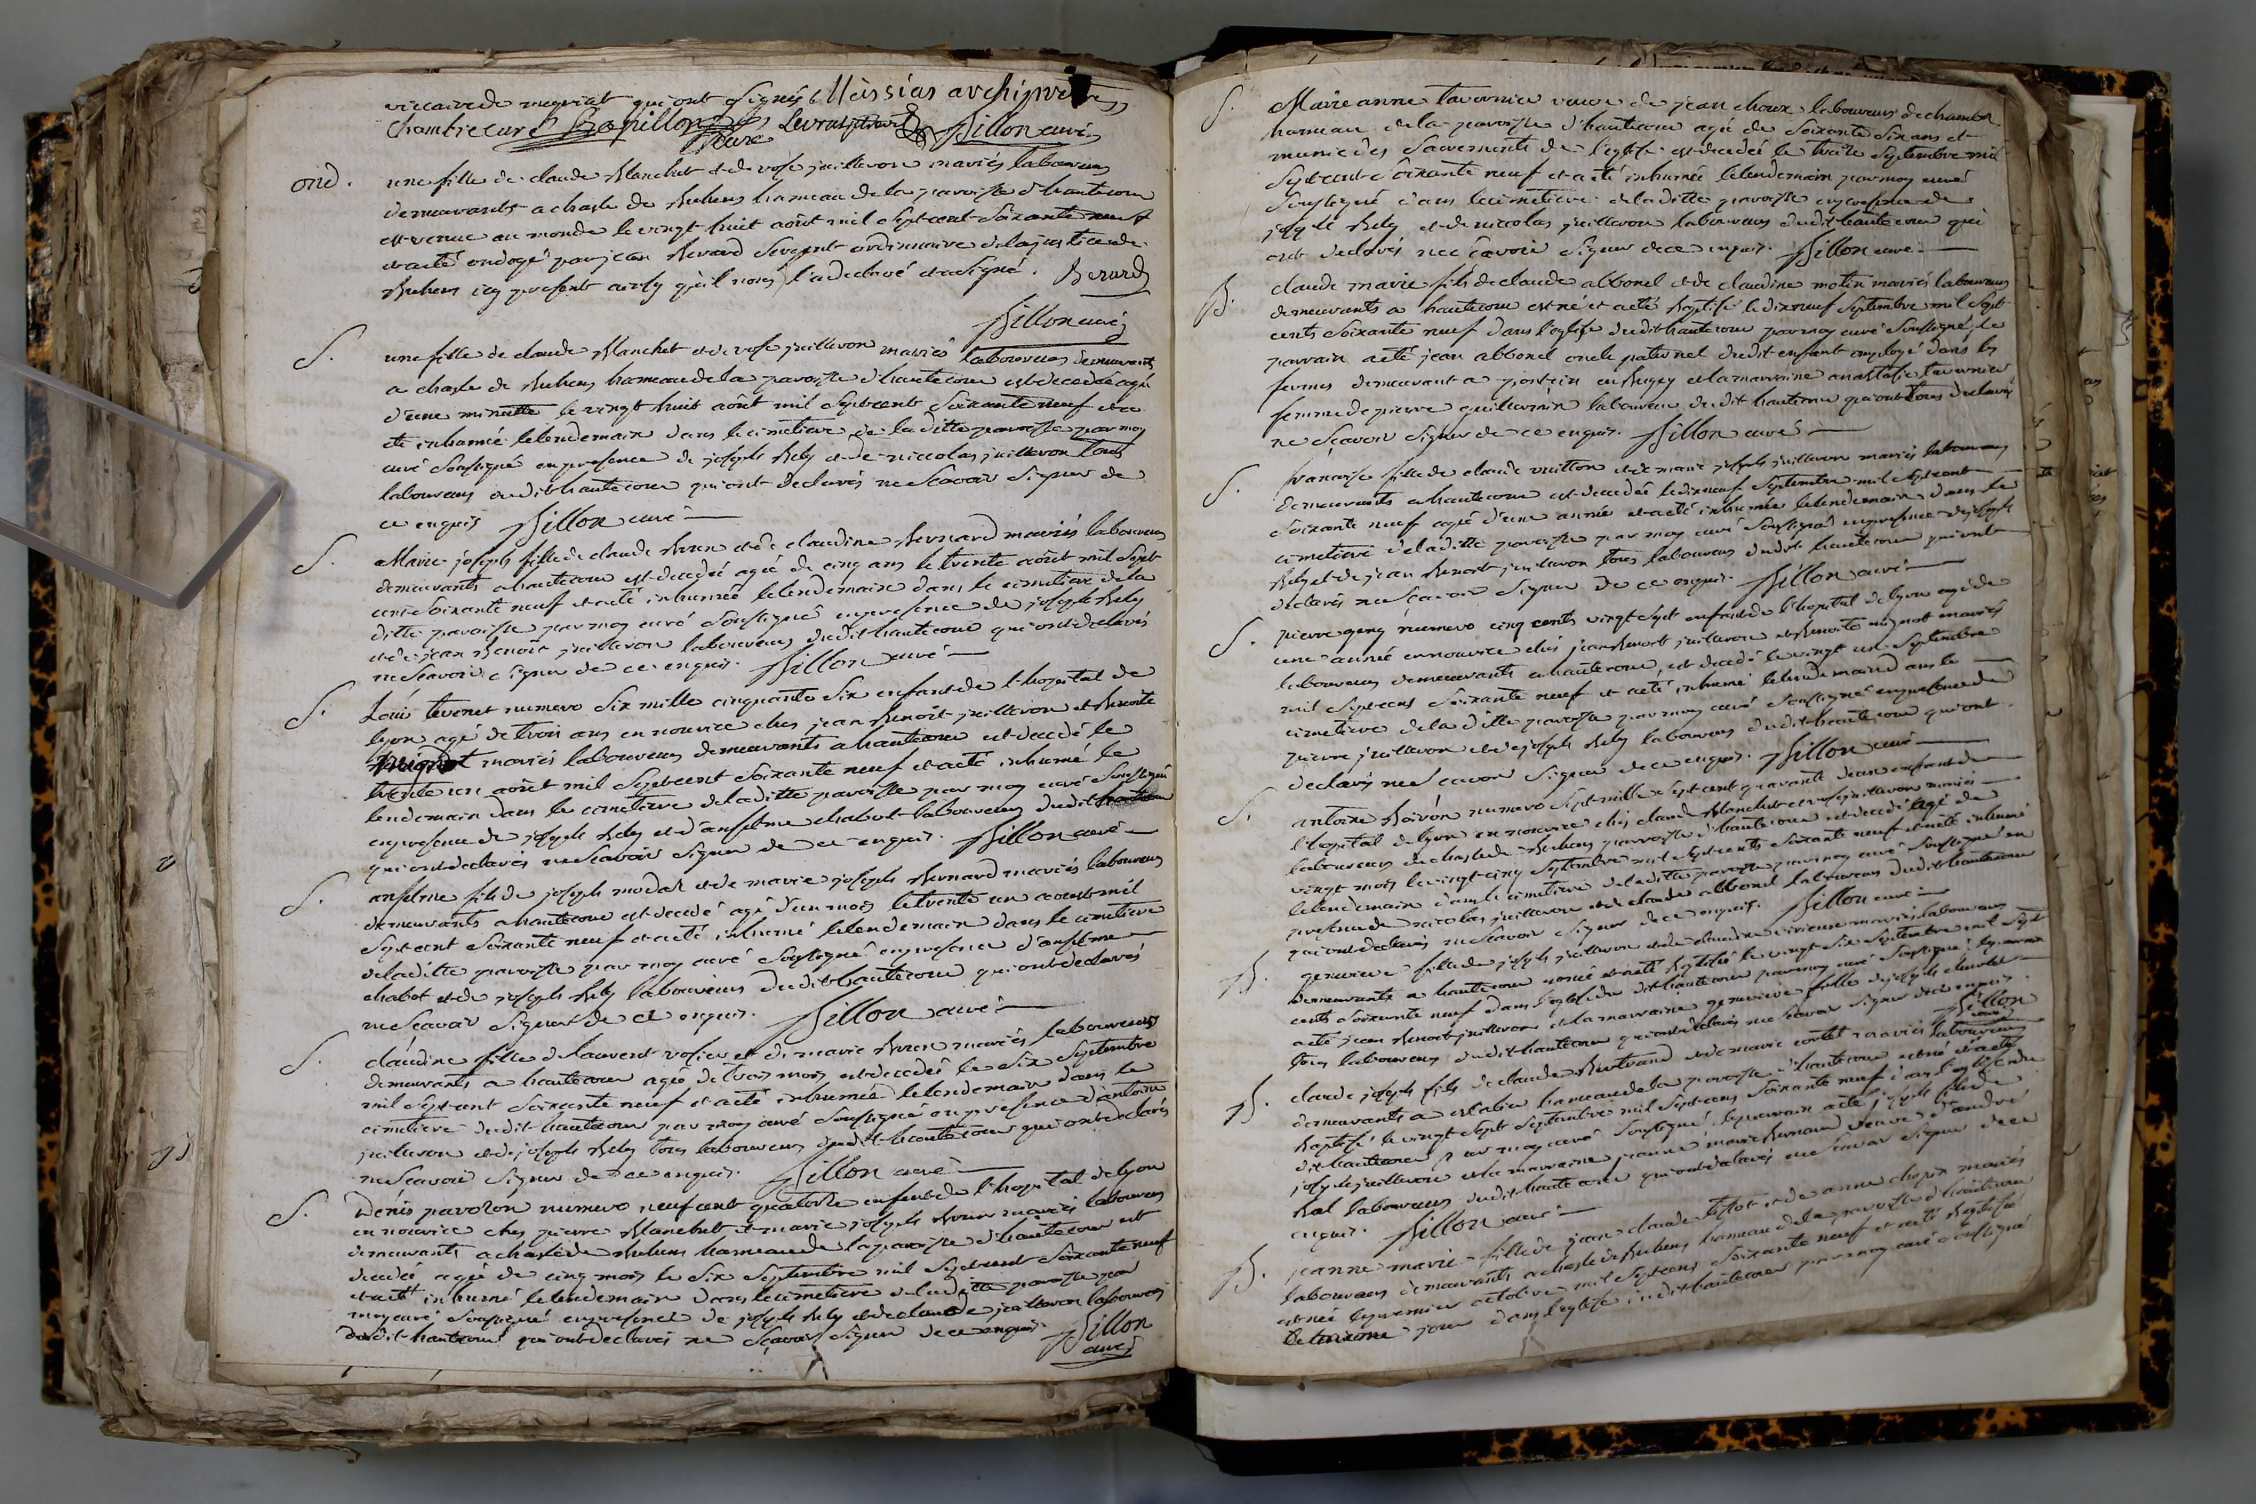 viccaire de meyriat qui ont signés Messias archiprêtre
Chambre curé Bapillon Levrat Sillon curé
ond. une fille de claude Blanchet et de rose juilleron mariés laboureurs
demeurants a chasle de Buhens hameau de la paroisse d'hautecour
est venue au monde le vingt huit août mil sept cent soixante neuf
et a eté ondoyé par jean Berard sergent ordinaire de la justice de
Buhens icy present ainsy qu'il nous l'a declaré et a signé. Berard
Sillon curé
S. une fille de claude Blanchet et de rose juilleron mariés laboureurs demeurants
a chasle de Buhens hameau de la paroisse d'hautecour est decedée agée
d'une minutte le vingt huit août mil sept cent soixante neuf et a
eté inhumée le lendemain dans le cimetiere de la ditte paroisse par moy
curé soussigné en presence de joseph Rely et de niccolas juilleron tous
laboureurs dudit hautecour qui ont declarés ne scavoir signer de
ce enquis Sillon curé
S. Marie joseph fille de claude Brun et de claudine Bernard mariés laboureurs
demeurants a hautecour est decedée agée de cinq ans le trente août mil sept
cent soixante neuf et a eté inhumée le lendemain dans le cimetiere de la
ditte paroisse par moy curé soussigné en presence de joseph Rely
et de jean Benoît juilleron laboureurs dudit hautecour qui ont declarés
ne scavoir signer de ce enquis. Sillon curé
S. Loüis tevenet numero six mille cinquante six enfant de l'hopital de
lyon agé de trois ans en nourice chez jean Benoît juilleron et Benoite
mariés laboureurs demeurants a hautecour est decedé le
trente un août mil sept cent soixante neuf et a eté inhumé le
lendemain dans le cimetiere de la ditte paroisse par moy curé soussigné
en presence de joseph Rely et d'anselme chabot laboureurs dudit hautecour
qui ont declarés ne scavoir signer de ce enquis. Sillon curé
S. anselme fils de joseph modas et de marie joseph Bernard mariés laboureurs
demeurants a hautecour est decedé agé d'un mois le trente un aoust mil
sept cent soixante neuf et a eté inhumé le lendemain dans le cimetiere
de la ditte paroisse par moy curé soussigné en presence d'anselme
chabot et de joseph Rely laboureurs dudit hautecour qui ont declarés
ne scavoir signer de ce enquis. Sillon curé
S. claudine fille de laurent rosier et de marie Brun mariés laboureurs
demeurants a hautecour agée de trois mois est decedée le six septembre
mil sept cent soixante neuf et a eté inhumée le lendemain dans le
cimetiere dudit hautecour par moy curé soussigné en presence d'antoine
juilleron et de joseph Rely tous laboureurs dudit hautecour qui ont declarés
ne scavoir signer de ce enquis. Sillon curé
S. Denis pavoron numero neuf cent quatorze enfant de l'hopital de lyon
en nourice chez pierre Blanchet et marie joseph Brun mariés laboureurs
demeurants a chasle de Buhens hameau de la paroisse d'hautecour est
decedé agé de cinq mois le six septembre mil sept cent soixante neuf
et a eté inhumé le lendemain dans le cimetiere de la ditte paroisse par
moy curé soussigné en presence de joseph Rely et de claude juilleron laboureurs
dudit hautecour qui ont declarés ne scavoir signer de ce enquis. Sillon
curé
S. Marie anne tavernier veuve de jean choux laboureur de chambod
hameau de la paroisse d'hautecour agée de soixante six ans et
munie des sacrements de l'eglise est decedée le treize septembre mil
sept cent soixante neuf et a eté inhumée le lendemain par moy curé
soussigné dans le cimetiere de la ditte paroisse en presence de
joseph Rely et de niccolas juilleron laboureurs dudit hautecour qui
ont declarés ne scavoir signer de ce enquis. Sillon curé
B. claude marie fils de claude abbonel et de claudine motin mariés laboureurs
demeurants a hautecour est né et a eté baptisé le dix neuf septembre mil sept
cents soixante neuf dans l'eglise dudit hautecour par moy curé soussigné, le
parrain a eté jean abbonel oncle paternel dudit enfant employé dans les
fermes demeurant a pontcin en Bugey et la marraine anastasie tavernier
femme de pierre guillermin laboureur dudit hautecour qui ont tous declarés
ne scavoir signer de ce enquis. Sillon curé
S. francoise fille de claude vuitton et de marie joseph juilleron mariés laboureurs
demeurants a hautecour est decedée le dix neuf septembre mil sept cent
soixante neuf agée d'une année et a eté inhumée le lendemain dans le
cimetiere de la ditte paroisse par moy curé soussigné en presence de joseph
Rely et de jean Benoit juilleron tous laboureurs dudit hautecour qui ont
declarés ne scavoir signer de ce enquis. Sillon curé
S. pierre geny numero cinq cents vingt sept enfant de l'hopital de lyon agé de
une année en nourice chez jean Benoit juilleron et Benoite mignot mariés
laboureurs demeurants a hautecour est decedé le vingt un septembre
mil sept cens soixante neuf et a eté inhumé le lendemain dans le
cimetiere de la ditte paroisse par moy curé soussigné en presence de
pierre juilleron et de joseph Rely laboureurs dudit hautecour qui ont
declarés ne scavoir signer de ce enquis. Sillon curé
S. antoine Boivon numero sept mille sept cent quarante deux enfant de
l'hopital de lyon en nourice chez claude Blanchet et rose juilleron mariés
laboureurs de chasle de Buhens paroisse d'hautecour est decedé agé de
vingt mois le vingt cinq septembre mil sept cents soixante neuf et a eté inhumé
le lendemain dans le cimetiere de la ditte paroisse par moy curé soussigné en
presence de nicolas juilleron et de claude abbonel laboureurs dudit hautecour
qui ont declarés ne scavoir signer de ce enquis. Sillon curé
B. genevieve fille de joseph juilleron et de claudine mariés laboureurs
demeurants a hautecour est née et a eté baptisée le vingt six septembre mil sept
cents soixante neuf dans l'eglise du dit hautecour par moy curé soussigné, le parrain
a eté jean Benoit juilleron et la marraine genevieve fille de joseph
tous laboureurs dudit hautecour qui ont declarés ne scavoir signer de ce enquis.
Sillon curé
B. claude joseph fils de claude Bertrand et de marie mariés laboureurs
demeurants a hameau de la paroisse d'hautecour est né et a eté
baptisé le vingt sept septembre mil sept cens soixante neuf dans l'eglise du
dit hautecour par moy curé soussigné, le parrain a eté joseph fils de
joseph juilleron et la marraine jeanne marie Bernard veuve d'andré
Ral laboureurs dudit hautecour qui ont declarés ne scavoir signer de ce
enquis. Sillon curé
B. jeanne marie fille de jean claude tissot et de anne chapex mariés
laboureurs demeurants a chasle de Buhens hameau de la paroisse d'hautecour
est née le premier octobre mil sept cens soixante neuf et a eté baptisée
le jour dans l'eglise dudit hautecour par moy curé soussigné